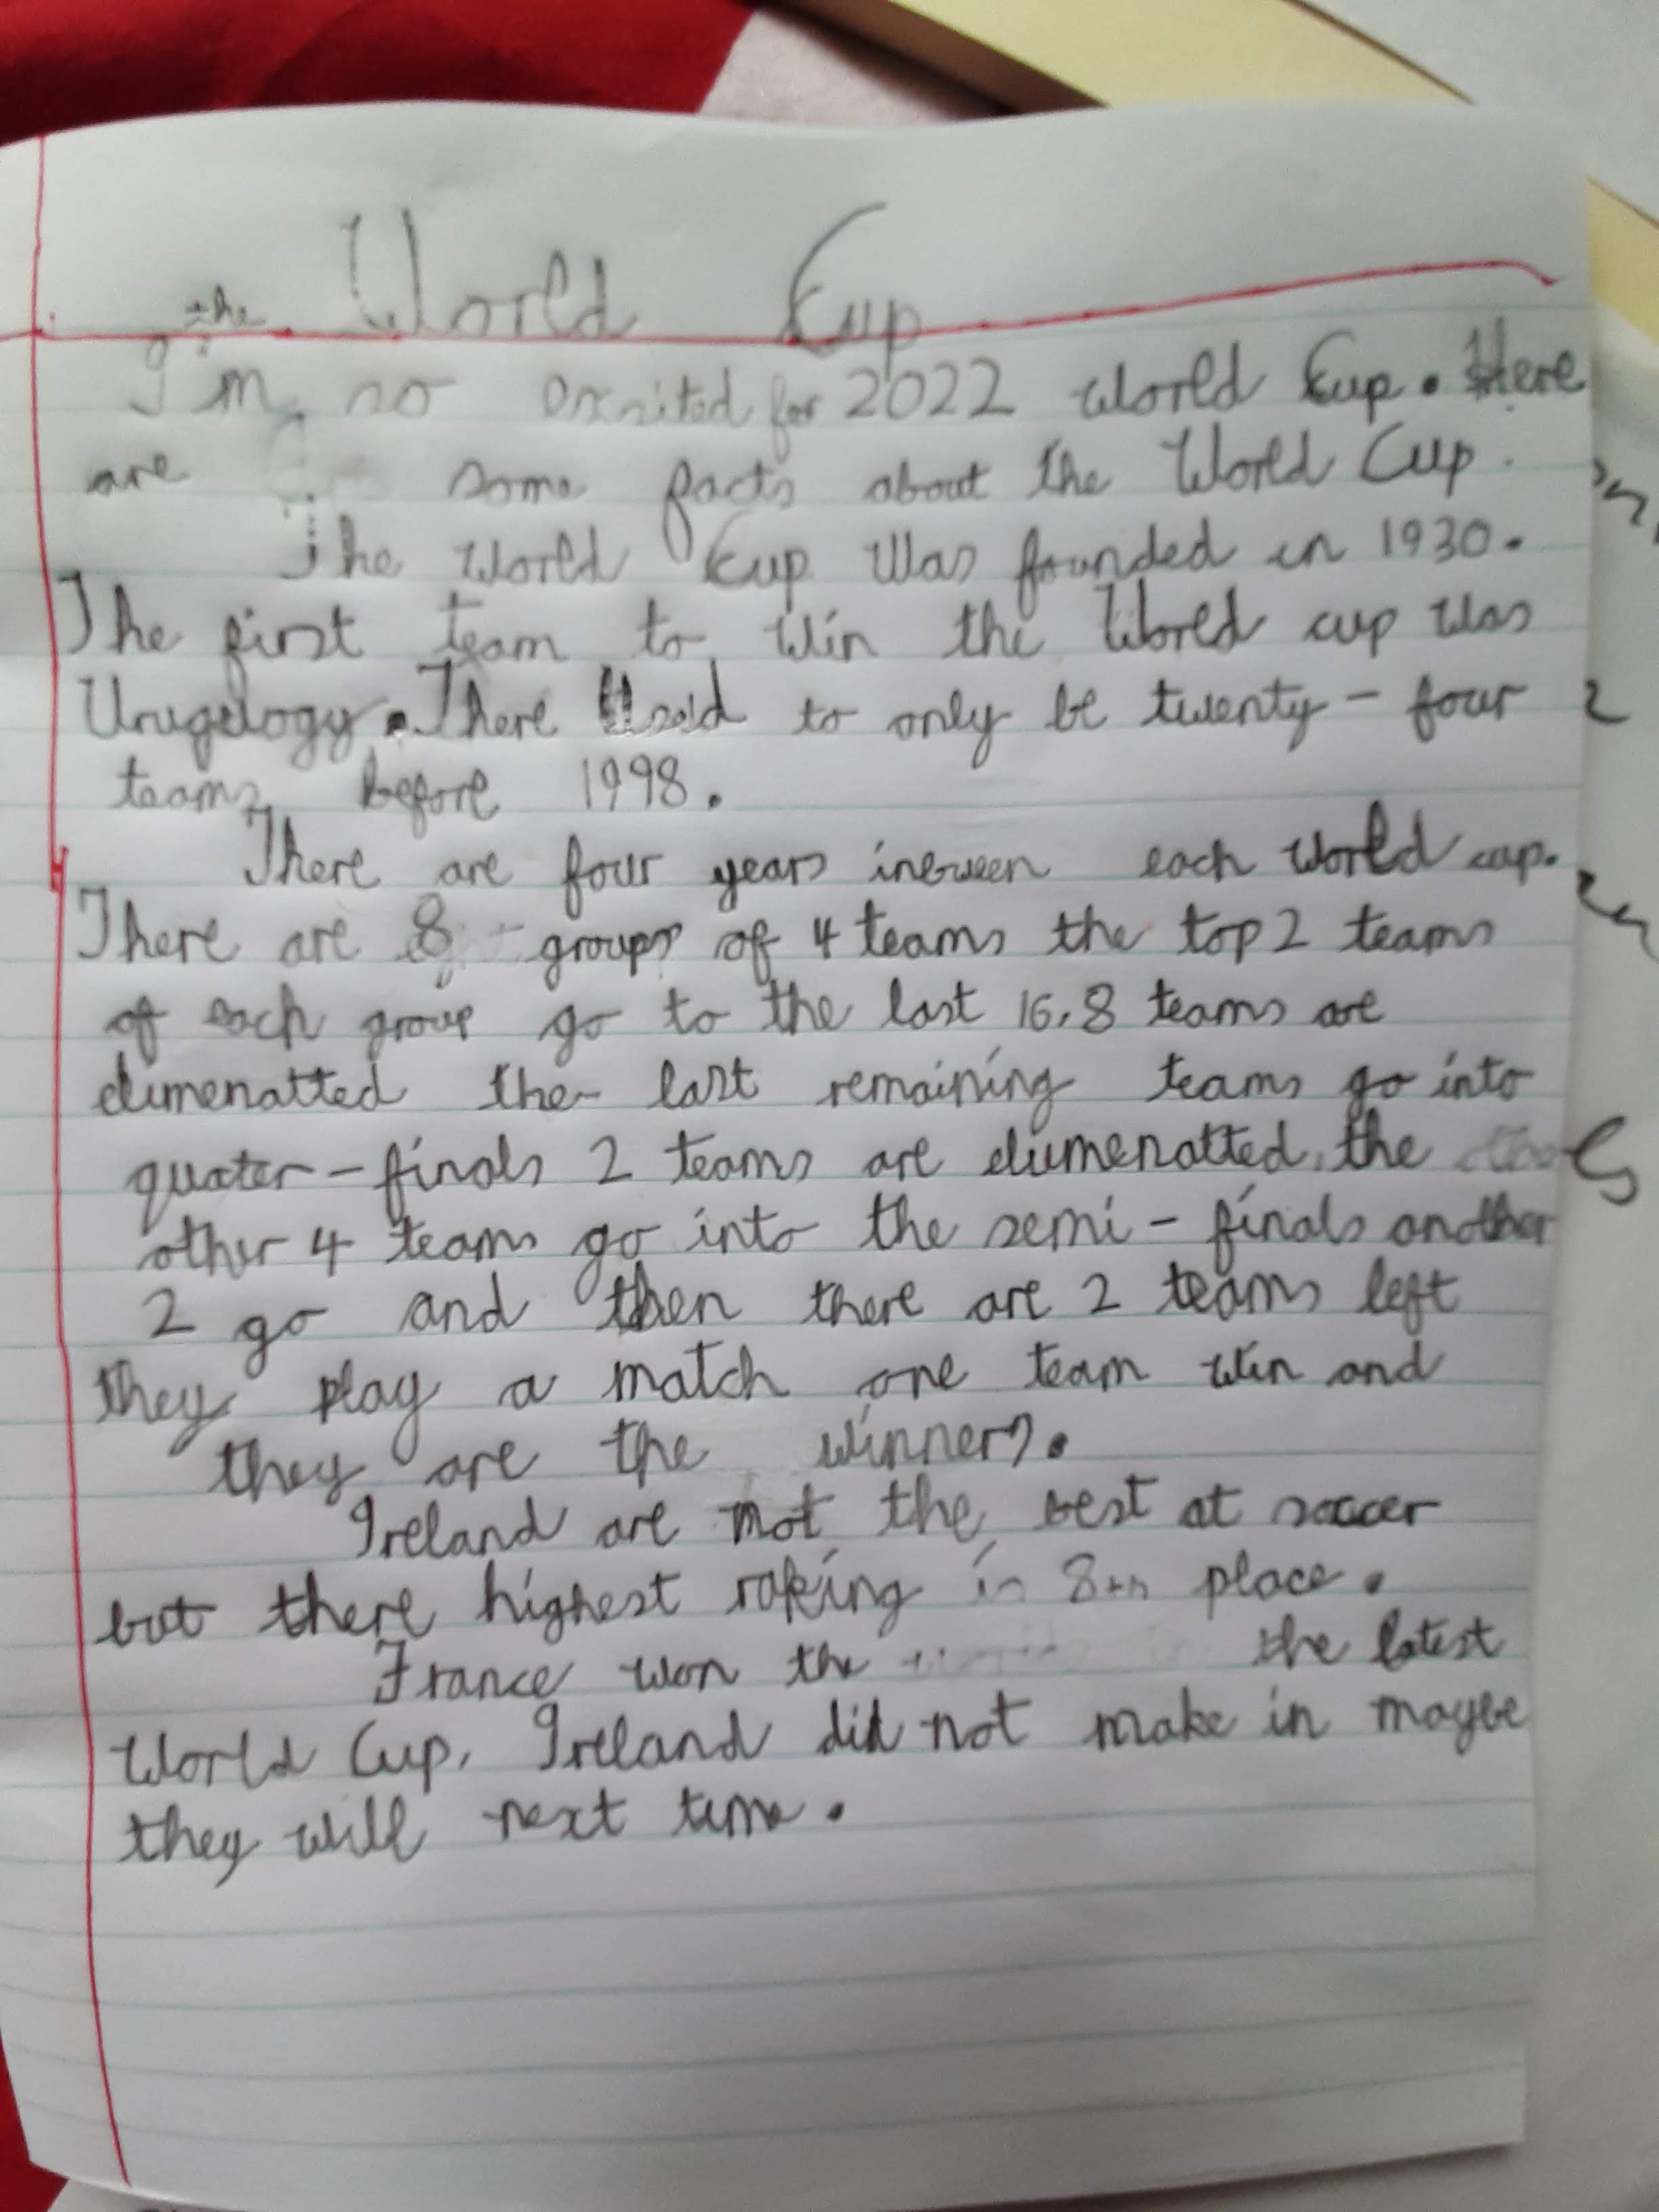 the World Cup
I'm so exsited for 2022 World Cup. Here
are some facts about the World Cup.
The World Cup was founded in 1930.
The first team to win the World cup was
Urugelogy. There Used to only be twenty-four
teams before 1998.
There are four years inbween each World cup.
There are 8 groups of 4 teams the top 2 teams
of each group go to the last 16, 8 teams are
elimenatted the last remaining teams go into
quater-finals 2 teams are elimenatted, the
other 4 teams go into the semi-finals another
2 go and then there are 2 teams left
they play a match one team win and
they are the winners.
Ireland are not the best at soccer
but there highest raking is 8th place.
France won the the latest
World Cup, Ireland did not make in maybe
they will next time.